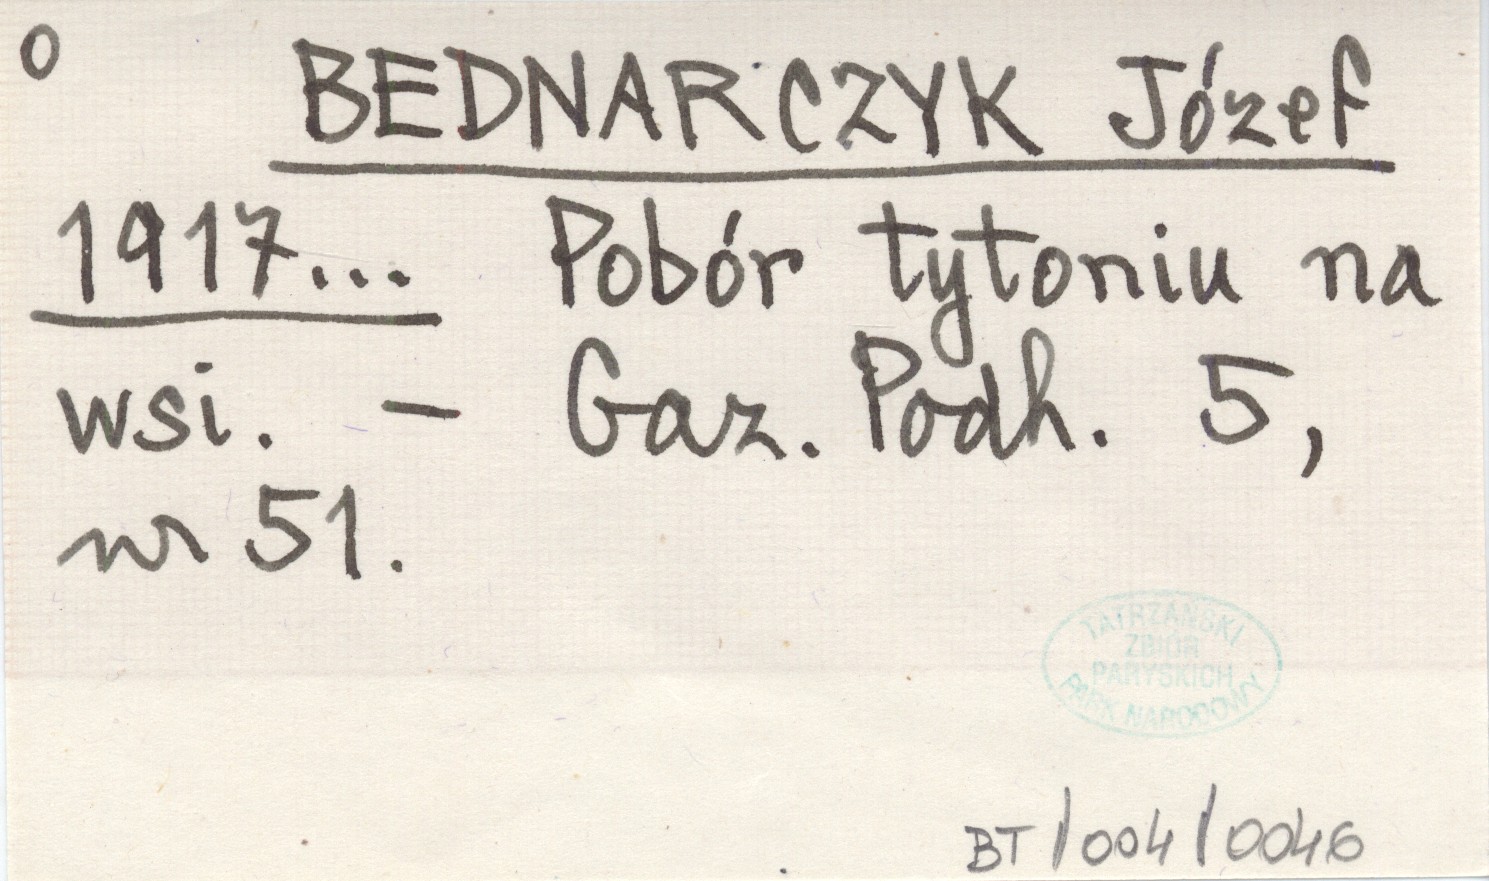 O
BEDNARCZYK Józef
1917... Pobór tytoniu na
wsi. – Gaz. Podh. 5,
nr 51.
TATRZAŃSKI
ZBIÓR
PARYSKICH
PARK NARODOWY
BT/004/0046